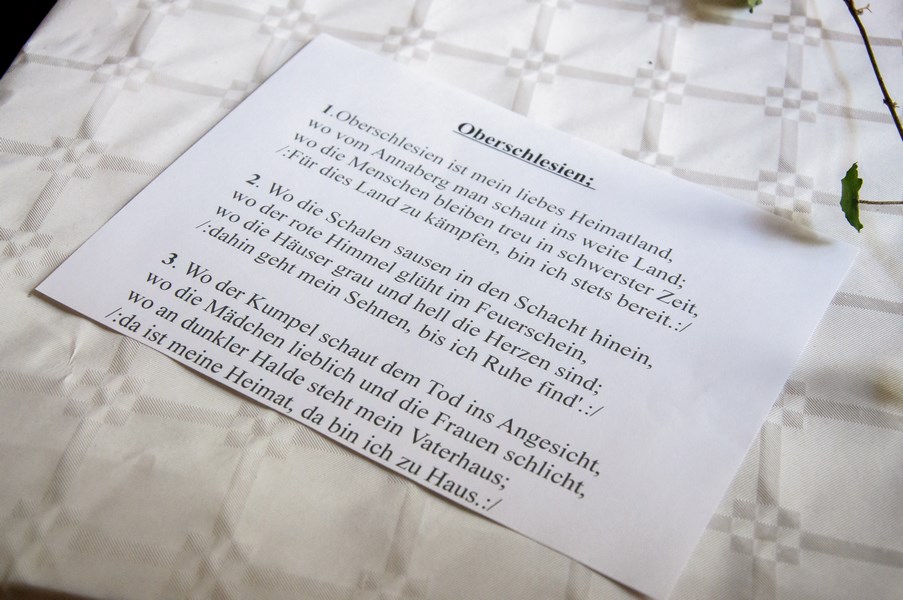 Oberschlesien:
1.Oberschlesien ist mein liebes Heimatland,
wo vom Annaberg man schaut ins weite Land;
wo die Menschen bleiben treu in schwerster Zeit,
/:Für dies Land zu kämpfen, bin ich stets bereit.:/
2. Wo die Schalen sausen in den Schacht hinein,
wo der rote Himmel glüht im Feuerschein,
wo die Häuser grau und hell die Herzen sind;
/:dahin geht mein Sehnen, bis ich Ruhe find'.:/
3. Wo der Kumpel schaut dem Tod ins Angesicht,
wo die Mädchen lieblich und die Frauen schlicht,
wo an dunkler Halde steht mein Vaterhaus;
/:da ist meine Heimat, da bin ich zu Haus.:/